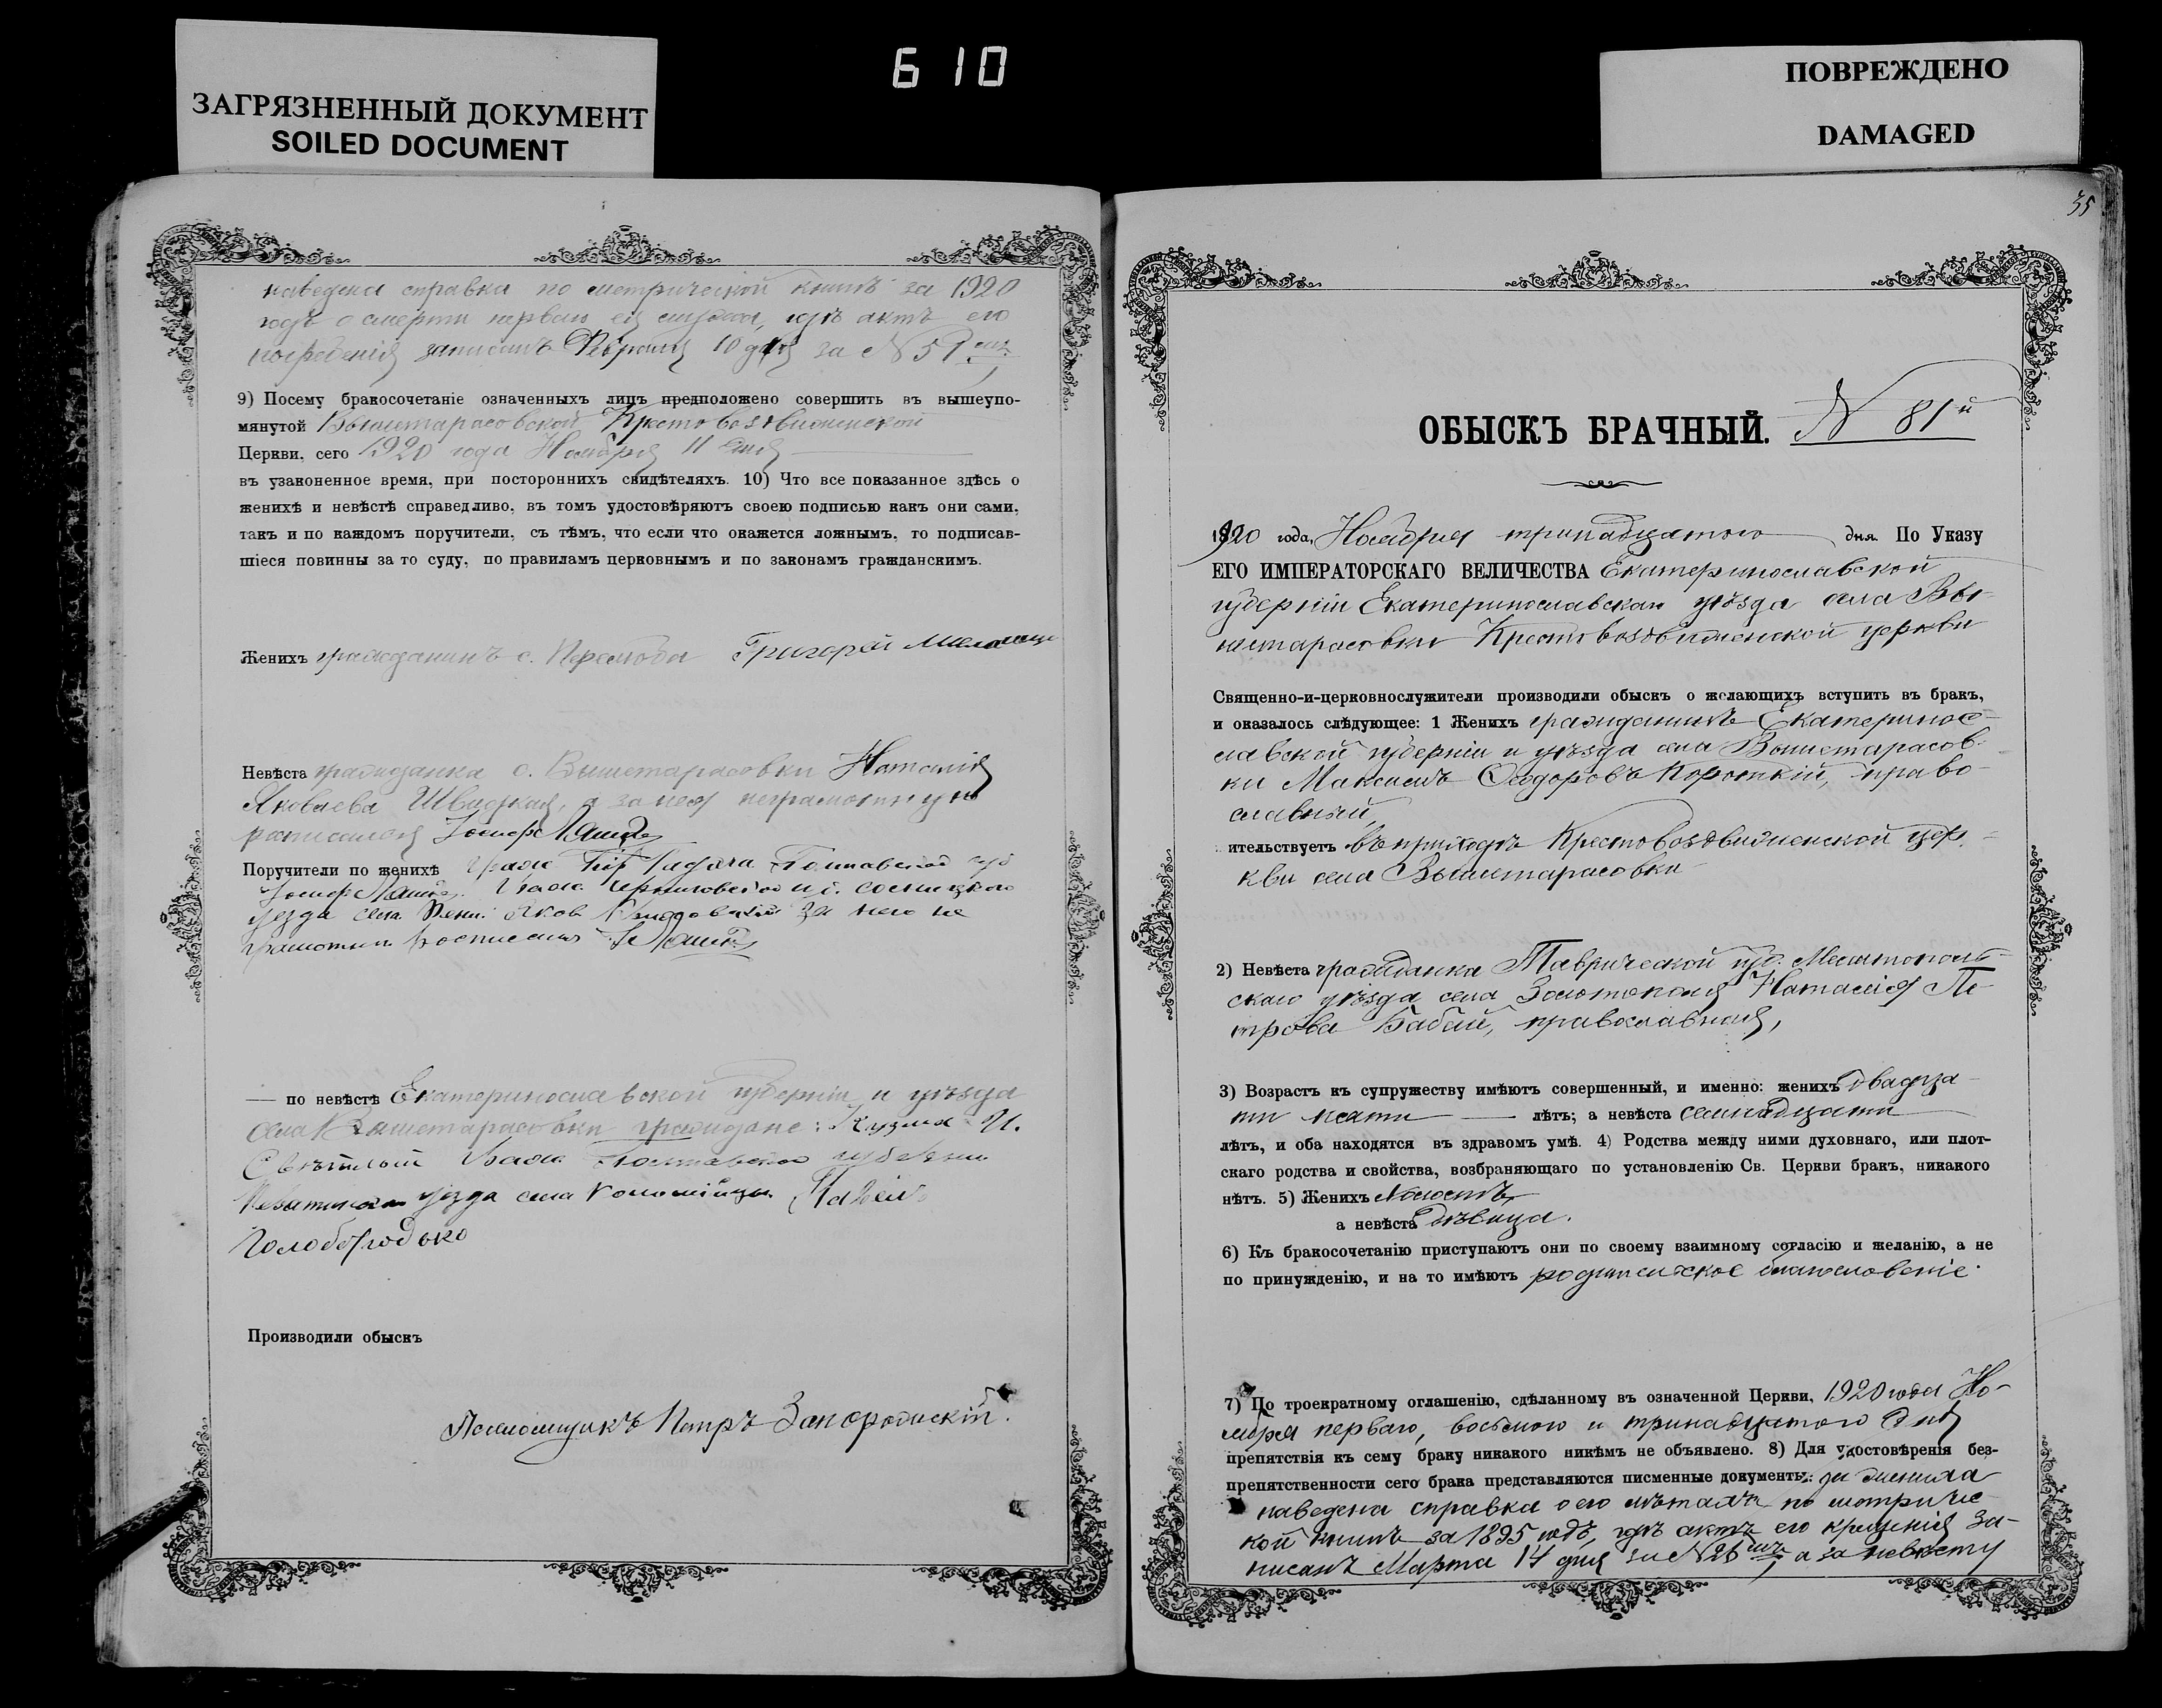 ЗАГРЯЗНЕННЫЙ ДОКУМЕНТ
SOILED DOCUMENT
610
ПОВРЕЖДЕНО
DAMAGED
наведена справка по метрической книгѣ за 1920
годъ о смерти перваго ея мужа, гдѣ актъ его
погребенія записанъ Февраля 10 дня за №
9) Посему бракосочетаніе означенныхъ лицъ предположено совершить въ вышеупо-
мянутой Вышетарасовской Крестовоздвиженской
Церкви, сего 1920 года Ноября 11 дня
въ узаконенное время, при постороннихъ свидѣтеляхъ. 10) Что все показанное здѣсь о
женихѣ и невѣстѣ справедливо, въ томъ удостовѣряютъ своею подписью какъ они сами,
такъ и по каждомъ поручители, съ тѣмъ, что если что окажется ложнымъ, то подписав-
шіеся повинны за то суду, по правиламъ церковнымъ и по законамъ гражданскимъ.
Женихъ гражданинъ с. Григорій
Невѣста гражданка с. Вышетарасовки Наталія
Яковлева Швидкая, а за нея неграмотную
росписался Іосиф
Поручители по женихѣ
Іосиф
уезда села Яков за него не
грамотный
— по невѣстѣ Екатеринославской губерніи и уѣзда
села Вышетарасовки граждане: Кузма И.
уезда села Павел
Голобородько
Производили обыскъ
Псаломщикъ Петръ Запорожскій.
35
ОБЫСКЪ БРАЧНЫЙ. № 81й
1920 года, Ноября тринадцатого дня. По Указу
ЕГО ИМПЕРАТОРСКАГО ВЕЛИЧЕСТВА Екатеринославской
губерніи Екатеринославскаго уѣзда села Вы-
шетарасовки Крестовоздвиженской церкви
Священно-и-церковнослужители производили обыскъ о желающихъ вступить въ бракъ,
и оказалось слѣдующее: 1 Женихъ гражданинъ Екатеринос-
лавской губерніи и уѣзда села Вышетарасов-
ки Максимъ Ѳеодоровъ Короткій, право-
славный,
ительствуетъ въ приходѣ Крестовоздвиженской цер-
кви села Вышетарасовки
2) Невѣста гражданка Таврической губ. Мелитополь-
скаго уѣзда села Золотополя Наталія Пе-
трова Бабай, православная,
3) Возрастъ къ супружеству имѣютъ совершенный, и именно: женихъ двадца-
ти пяти лѣтъ; а невѣста семнадцати
лѣтъ, и оба находятся въ здравомъ умѣ. 4) Родства между ними духовнаго, или плот-
скаго родства и свойства, возбраняющаго по установленію Св. Церкви бракъ, никакого
нѣтъ. 5) Женихъ холостъ,
а невѣста дѣвица.
6) Къ бракосочетанію приступаютъ они по своему взаимному согласію и желанію, а не
по принужденію, и на то имѣютъ родительское благословеніе.
7) По троекратному оглашенію, сдѣланному въ означенной Церкви, 1920 года Но-
ября перваго, восьмого и тринадцатого дня
препятствія къ сему браку никакого никѣмъ не объявлено. 8) Для удостовѣренія без-
препятственности сего брака представляются писменные документы: за жениха
наведена справка о его лѣтахъ по метричес-
кой книгѣ за 1895 годъ, гдѣ актъ его крещенія за-
писанъ Марта 14 дня за № 26 а за невѣсту